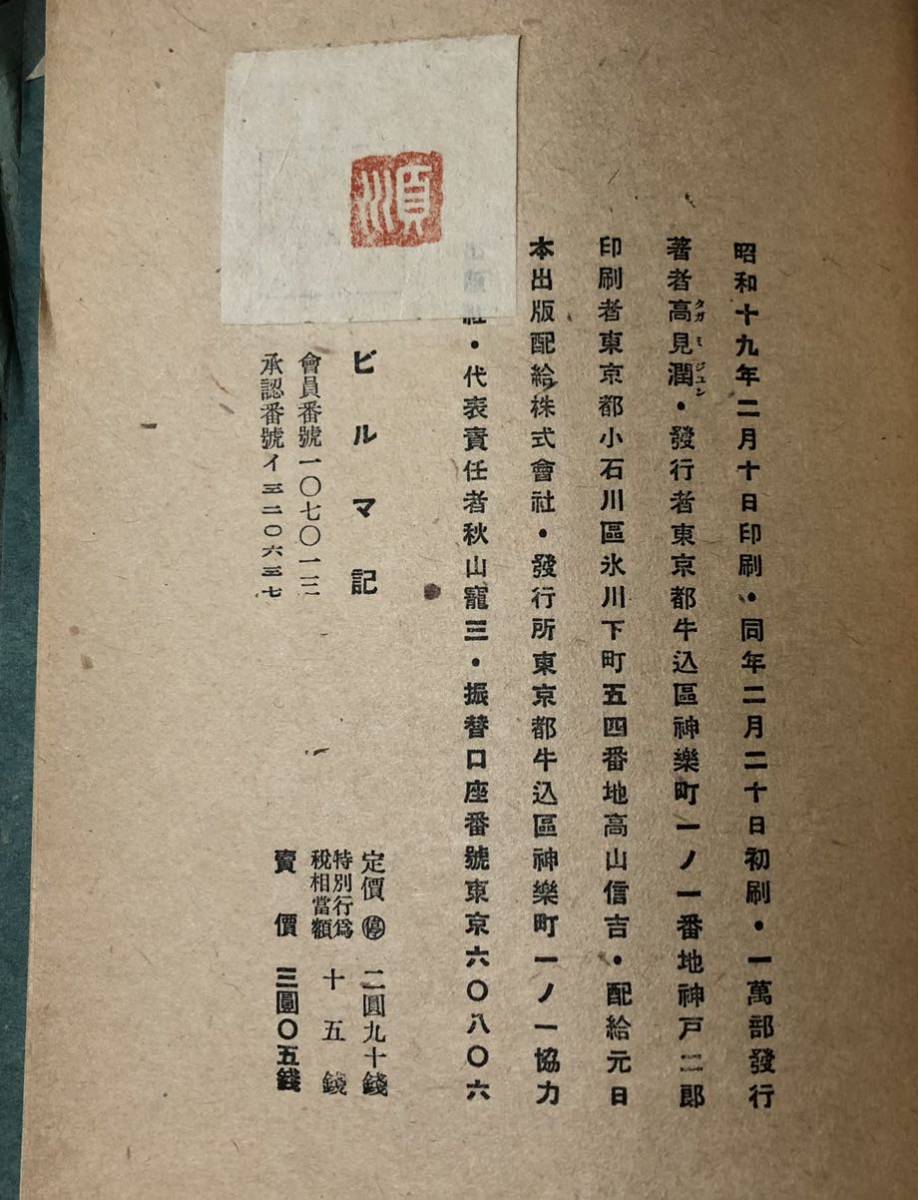 昭和十九年二月十日印刷・同年二月二十日初刷・一萬部發行
著者高見潤・發行者東京都牛込區神樂町一ノ一番地神戸二郎
タカミジュン
印刷者東京都小石川區氷川下町五四番地高山信吉・配給元日
本出版配給株式會社・發行所東京都牛込區神樂町一ノ一協力
社・代表責任者秋山寵三・振替口座番號東京六〇八〇六
順
ビルマ記
會員番號一〇七〇一三
承認番號イ三二〇六三七
定價 停 二圓九十錢
特別行爲税相當額 十五錢
賣價 三圓〇五錢